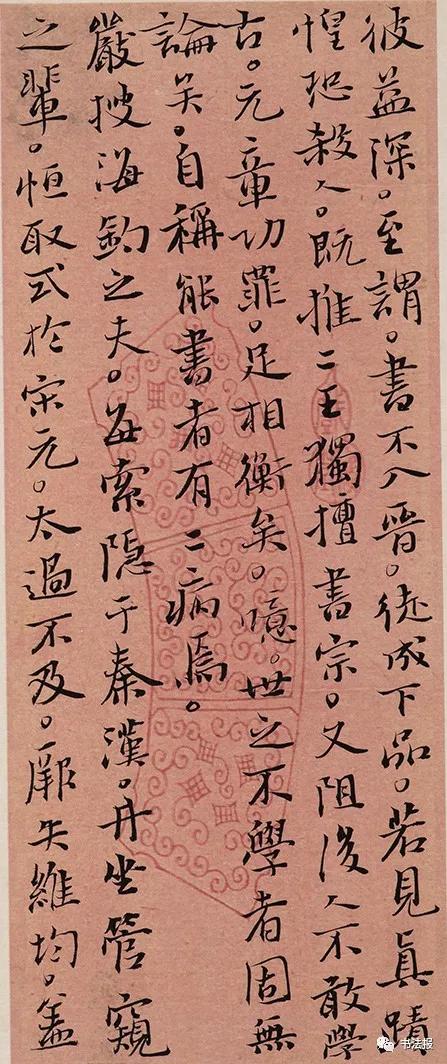 彼益深。至謂。書不入晉。徒成下品。若見真蹟
惶恐殺人。既推二王獨擅書宗。又阻後人不敢學
古。元章功罪。足相衡矣。噫。世之不學者固無
論矣。自稱能書者有二病焉。
巖搜海釣之夫。每索隱于秦漢。井坐管窺
之輩。恒取式於宋元。太過不及。厥失維均。蓋
书法报